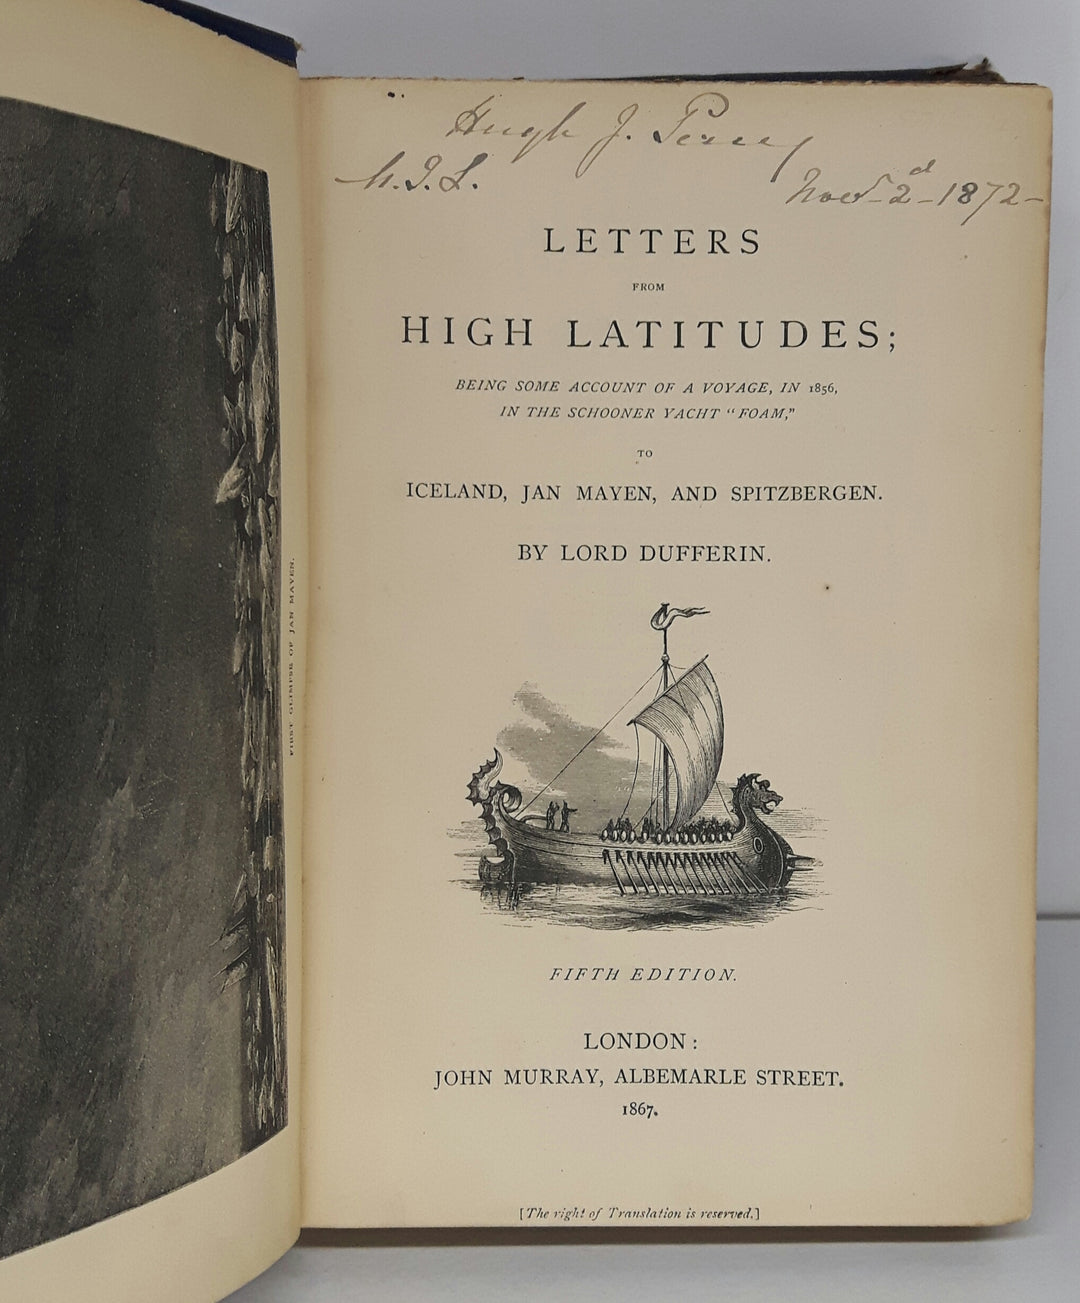 FIRST GLIMPSE OF JAN MAYEN.
Hugh J. Percy
Novr 2d 1872
LETTERS
FROM
HIGH LATITUDES;
BEING SOME ACCOUNT OF A VOYAGE, IN 1856,
IN THE SCHOONER YACHT “FOAM,”
TO
ICELAND, JAN MAYEN, AND SPITZBERGEN.
BY LORD DUFFERIN.
FIFTH EDITION.
LONDON:
JOHN MURRAY, ALBEMARLE STREET.
1867.
[The right of Translation is reserved.]